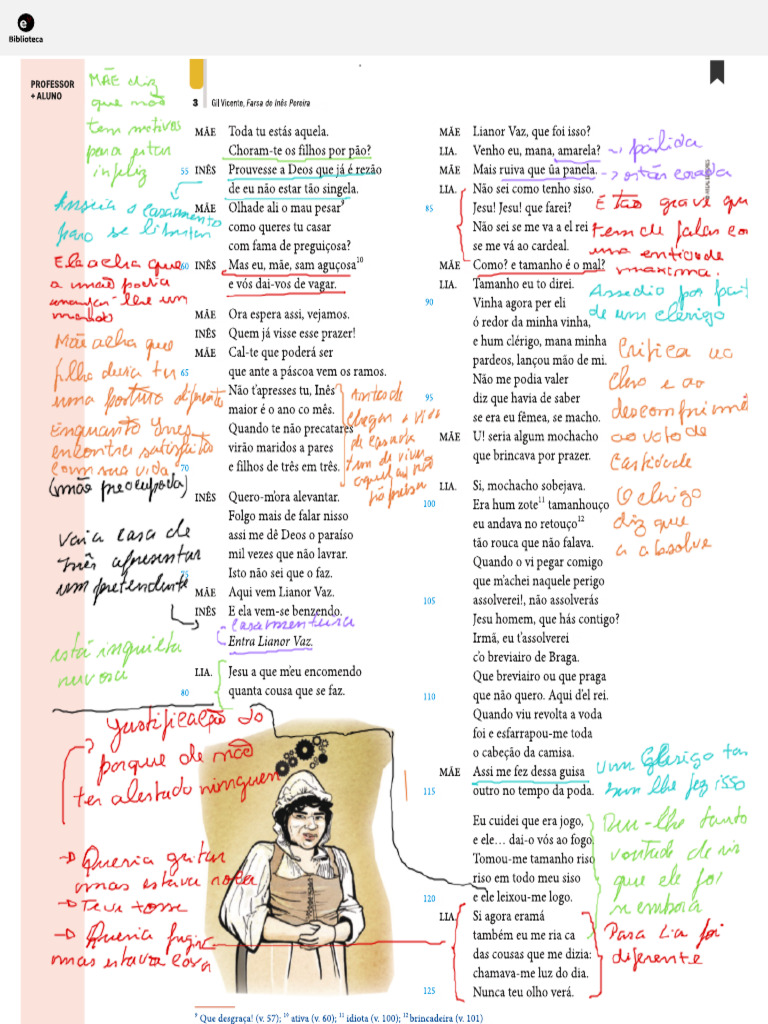 e
Biblioteca
PROFESSOR
+ ALUNO
MÃE diz
que não
tem motivos
para estar
infeliz
Anseia o casamento
para se libertar
Ela acha que
a mãe podia
arranjar-lhe um
marido
Mãe acha que
filha devia ter
uma postura diferente
Enquanto Inês
encontra satisfeita
com sua vida
(mãe preocupada)
Vai a casa de
Inês apresentar
um pretendente
está inquieta
nervosa
3 Gil Vicente, Farsa de Inês Pereira
MÃE Toda tu estás aquela.
Choram-te os filhos por pão?
55 INÊS Prouvesse a Deos que já é rezão
de eu não estar tão singela.
MÃE Olhade ali o mau pesar⁹
como queres tu casar
com fama de preguiçosa?
60 INÊS Mas eu, mãe, sam aguçosa¹⁰
e vós dai-vos de vagar.
MÃE Ora espera assi, vejamos.
INÊS Quem já visse esse prazer!
MÃE Cal-te que poderá ser
65 que ante a páscoa vem os ramos.
Não t'apresses tu, Inês
maior é o ano co mês.
Quando te não precatares
virão maridos a pares
70 e filhos de três em três.
Antes de
chegar a vida
de casada
tem de viver
INÊS Quero-m'ora alevantar.
Folgo mais de falar nisso
assi me dê Deos o paraíso
mil vezes que não lavrar.
75 Isto não sei que o faz.
MÃE Aqui vem Lianor Vaz.
INÊS E ela vem-se benzendo.
casamenteira
Entra Lianor Vaz.
LIA. Jesu a que m'eu encomendo
80 quanta cousa que se faz.
Justificação do
porque de não
ter alertado ninguém
→ Queria gritar
mas estava rouca
→ Teve tosse
→ Queria fugir
mas estava
MÃE Lianor Vaz, que foi isso?
LIA. Venho eu, mana, amarela?
MÃE Mais ruiva que ũa panela.
LIA. Não sei como tenho siso.
85 Jesu! Jesu! que farei?
Não sei se me va a el rei
se me vá ao cardeal.
MÃE Como? e tamanho é o mal?
→ pálida
→ estás corada
É tão grave que
tem de falar co
uma entidade
máxima.
LIA. Tamanho eu to direi.
90 Vinha agora per eli
ó redor da minha vinha,
e hum clérigo, mana minha
pardeos, lançou mão de mi.
Não me podia valer
95 diz que havia de saber
se era eu fêmea, se macho.
MÃE U! seria algum mochacho
que brincava por prazer.
Assédio por part
de um clérigo
Crítica ao
clero e ao
descomprimento
ao voto de
castidade
LIA. Si, mochacho sobejava.
100 Era hum zote¹¹ tamanhouço
eu andava no retouço¹²
tão rouca que não falava.
Quando o vi pegar comigo
que m'achei naquele perigo
105 assolverei!, não assolverás
Jesu homem, que hás contigo?
Irmã, eu t'assolverei
c'o breviairo de Braga.
Que breviairo ou que praga
110 que não quero. Aqui d'el rei.
Quando viu revolta a voda
foi e esfarrapou-me toda
o cabeção da camisa.
O clérigo
diz que
a absolve
MÃE Assi me fez dessa guisa
115 outro no tempo da poda.
um Clérigo tam
bem lhe fez isso
Eu cuidei que era jogo,
e ele… dai-o vós ao fogo
Tomou-me tamanho riso
riso em todo meu siso
120 e ele leixou-me logo.
Deu-lhe tanto
vontade de rir
que ele foi
se embora
LIA. Si agora eramá
também eu me ria ca
das cousas que me dizia:
chamava-me luz do dia.
125 Nunca teu olho verá.
Para Lia foi
diferente
⁹ Que desgraça! (v. 57); ¹⁰ ativa (v. 60); ¹¹ idiota (v. 100); ¹² brincadeira (v. 101)